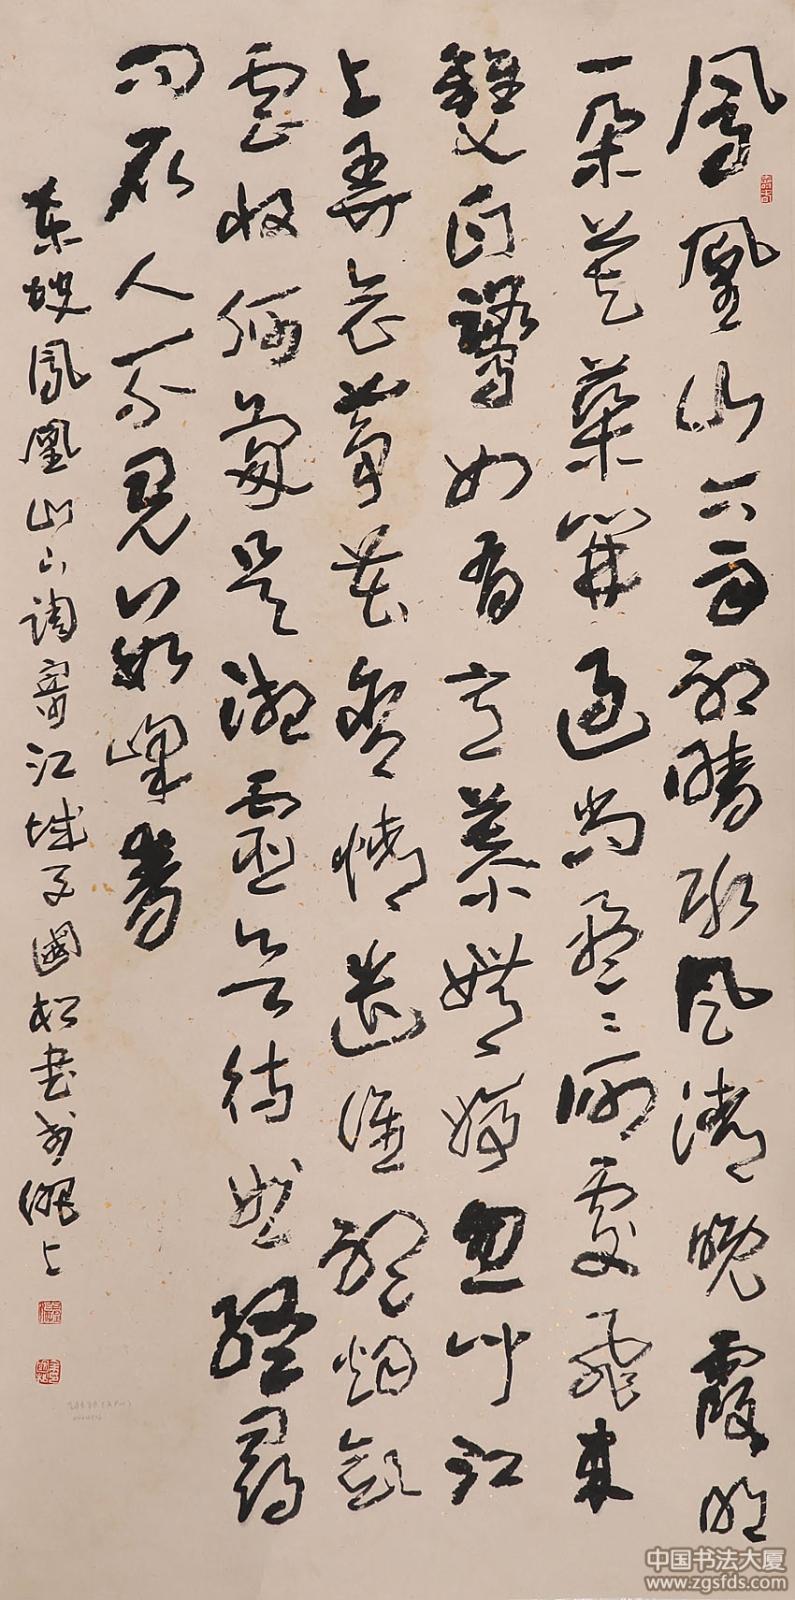 鳳凰山下雨初晴水風清晚霞明
一朵芙蕖開過尚盈盈何處飛來
雙白鷺如有意慕娉婷忽聞江
上弄哀箏苦含情遣誰聽煙斂
雲收是湘靈欲待曲終尋
問取人不見數峰青
東坡鳳凰山下調寄江城子國松書於上
中国书法大厦
www.zgsfds.com